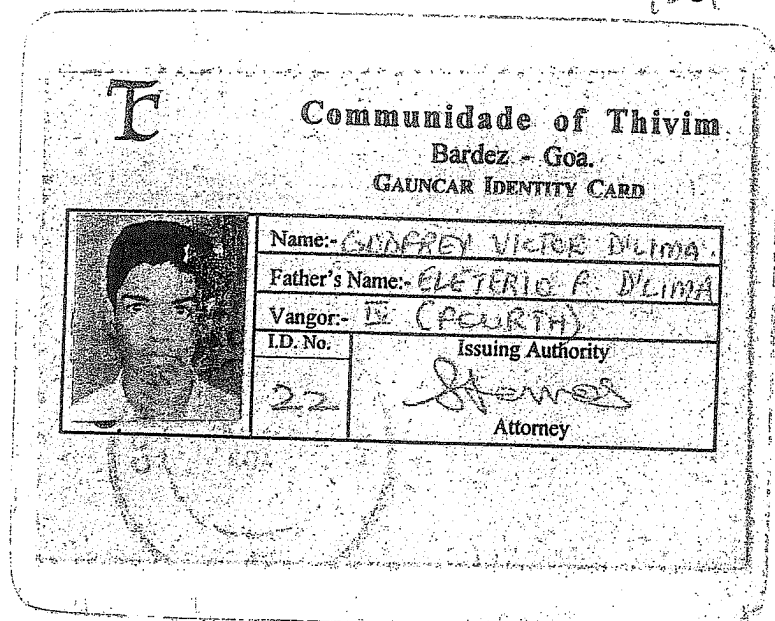 Tc
Communidade of Thivim
Bardez - Goa.
GAUNCAR IDENTITY CARD
Name:- GODFREY VICTOR D'LIMA.
Father's Name:- ELETERIO P. D'LIMA
Vangor:- IV (FOURTH)
I.D. No.
22
Issuing Authority
Attorney